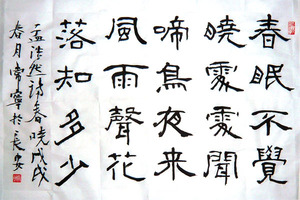 春眠不覺
曉處處聞
啼鳥夜来
風雨聲花
落知多少
孟浩然詩春曉戊戌
春月常寧於長安